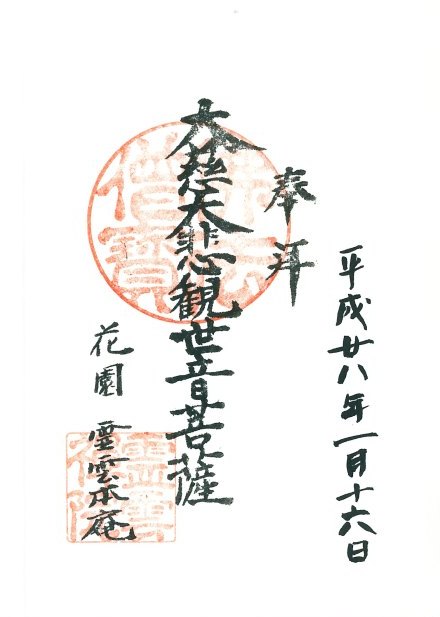 平成廿八年一月十六日
奉拝
大慈大悲観世音菩薩
花園 霊雲本庵
佛法僧寶